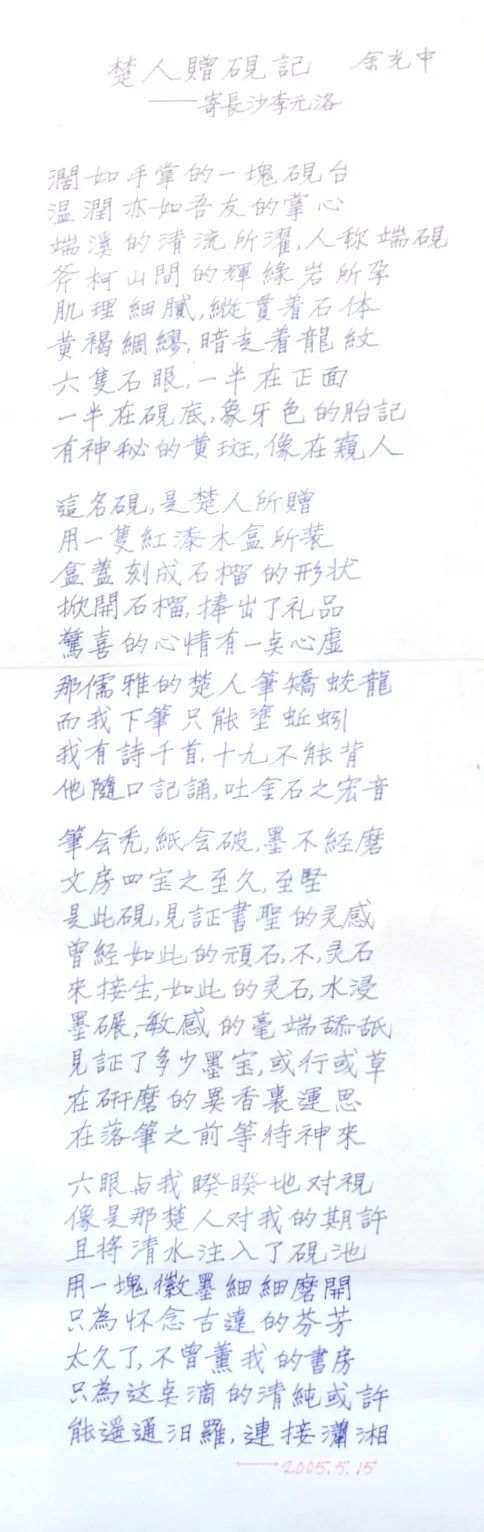 楚人贈硯記　余光中
——寄長沙李元洛
濶如手掌的一塊硯台
温潤亦如吾友的掌心
端溪的清流所濯,人称端硯
斧柯山間的輝綠岩所孕
肌理細膩,縱貫着石体
黄褐綢繆,暗走着龍紋
六隻石眼,一半在正面
一半在硯底,象牙色的胎記
有神秘的黄斑,像在窺人
這名硯,是楚人所贈
用一隻紅漆木盒所装
盒蓋刻成石榴的形状
掀開石榴,捧出了礼品
驚喜的心情有一点心虚
那儒雅的楚人筆矯蛟龍
而我下筆只能塗蚯蚓
我有詩千首,十九不能背
他隨口記誦,吐金石之宏音
筆会秃,紙会破,墨不經磨
文房四宝之至久,至堅
是此硯,見証書聖的灵感
曾經如此的頑石,不,灵石
來接生,如此的灵石,水浸
墨碾,敏感的毫端舔舐
見証了多少墨宝,或行或草
在研磨的異香裏運思
在落筆之前等待神來
六眼与我睽睽地对視
像是那楚人对我的期許
且将清水注入了硯池
用一塊徽墨細細磨開
只為怀念古遠的芬芳
太久了,不曾薰我的書房
只為这点滴的清純或許
能遥通汨羅,連接瀟湘
——2005.5.15